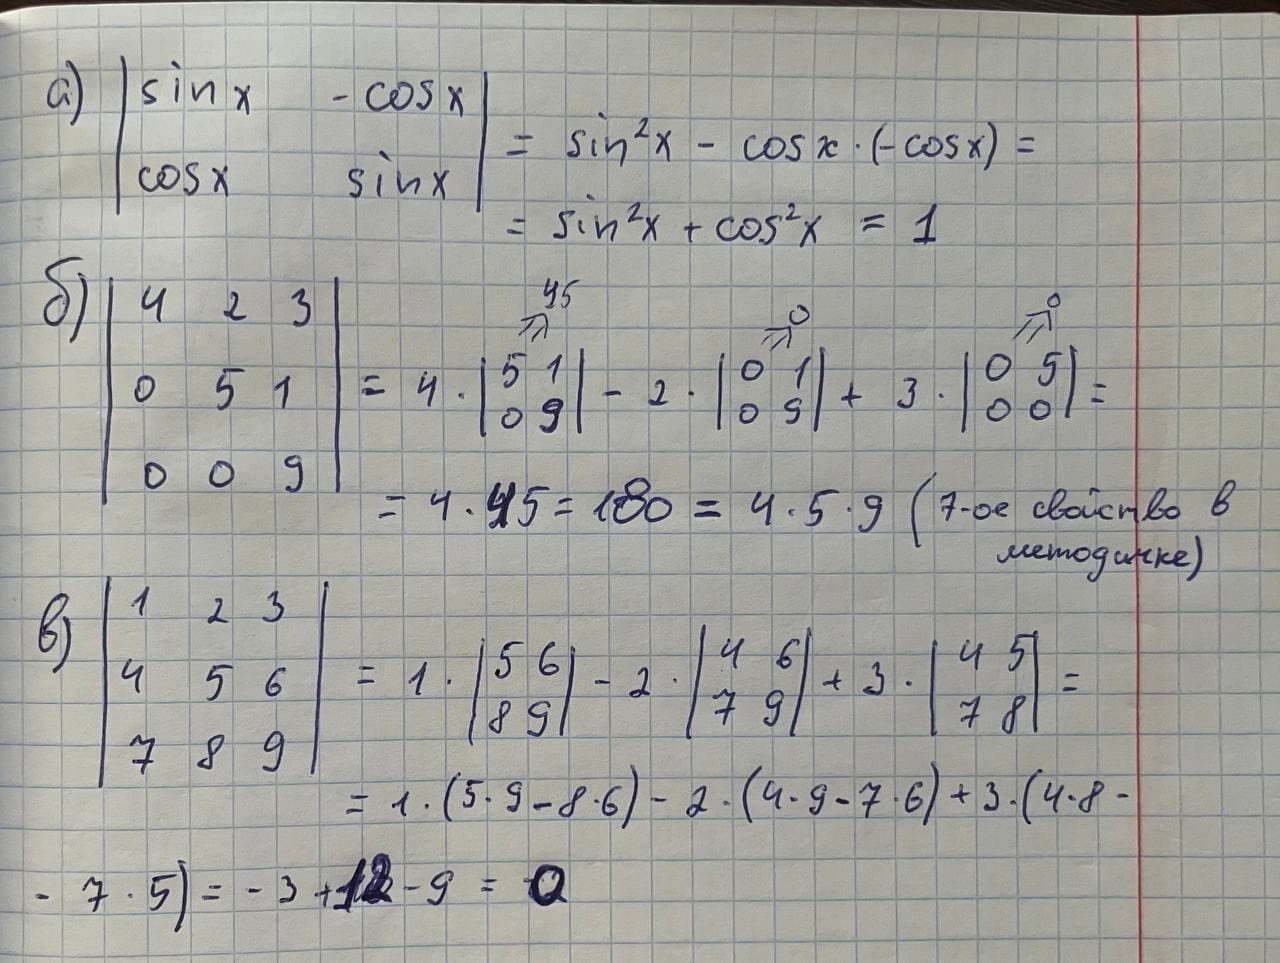 а) | sin x   - cos x |
   | cos x   sin x | = sin²x - cos x · (-cos x) =
= sin²x + cos²x = 1
б) | 4 2 3 |
   | 0 5 1 | = 4 · | 5 1 | - 2 · | 0 1 | + 3 · | 0 5 | =
   | 0 0 9 |       | 0 9 |       | 0 9 |       | 0 0 |
⇒ 45   ⇒ 0   ⇒ 0
= 4 · 45 = 180 = 4 · 5 · 9 (7-ое свойство в
методичке)
в) | 1 2 3 |
   | 4 5 6 | = 1 · | 5 6 | - 2 · | 4 6 | + 3 · | 4 5 | =
   | 7 8 9 |       | 8 9 |       | 7 9 |       | 7 8 |
= 1 · (5·9 - 8·6) - 2 · (4·9 - 7·6) + 3 · (4·8 -
- 7 · 5) = - 3 + 12 - 9 = 0